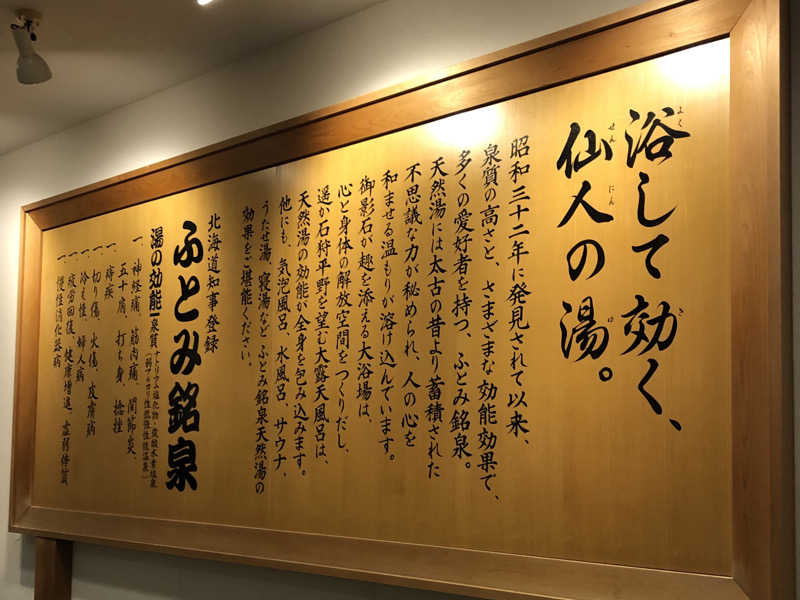 浴して効く、
仙人の湯。
昭和三十二年に発見されて以来、
泉質の高さと、さまざまな効能効果で、
多くの愛好者を持つ、ふとみ銘泉。
天然湯には太古の昔より蓄積された
不思議な力が秘められ、人の心を
和ませる温もりが溶け込んでいます。
御影石が趣を添える大浴場は、
心と身体の解放空間をつくりだし、
遥か石狩平野を望む大露天風呂は、
天然湯の効能が全身を包み込みます。
他にも、気泡風呂、水風呂、サウナ、
うたせ湯、寝湯など ふとみ銘泉天然湯の
効果をご堪能ください。
北海道知事登録
ふとみ銘泉
湯の効能 泉質 ナトリウム塩化物・炭酸水素塩泉
(弱アルカリ性低張性低温泉)
一、神経痛、筋肉痛、関節炎、
五十肩、打ち身、捻挫
一、痔疾
一、切り傷、火傷、皮膚病
一、冷え性、婦人病
一、疲労回復、健康増進、虚弱体質
慢性消化器病